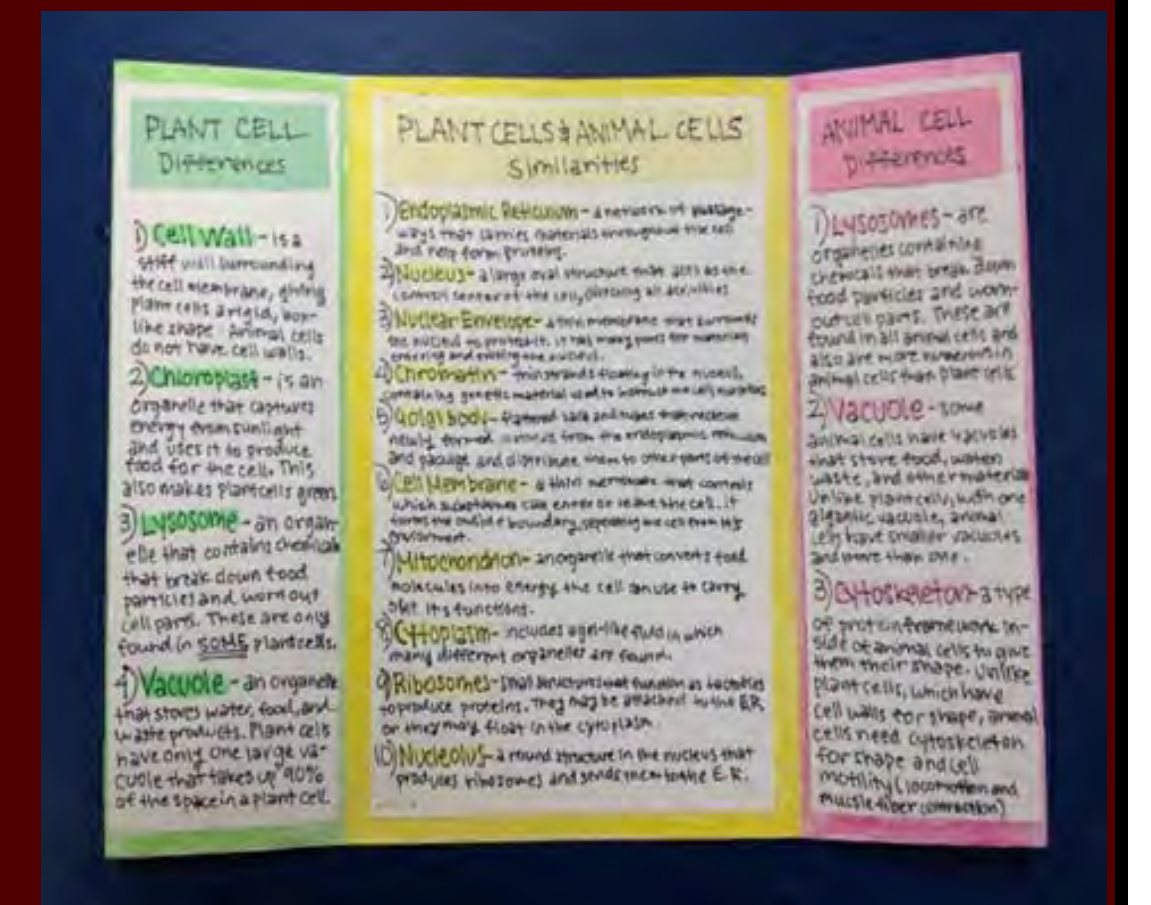 PLANT CELL
Differences
1) Cell Wall - is a
stiff wall surrounding
the cell membrane, giving
plant cells a rigid, box-
like shape. Animal cells
do not have cell walls.
2) Chloroplast - is an
organelle that captures
energy from sunlight
and uses it to produce
food for the cell. This
also makes plant cells green
3) Lysosome - an organ-
elle that contains chemicals
that break down food
particles and worn out
cell parts. These are only
found in SOME plant cells.
4) Vacuole - an organelle
that stores water, food, and
waste products. Plant cells
have only one large va-
cuole that takes up 90%
of the space in a plant cell.
PLANT CELLS & ANIMAL CELLS
Similarities
1) Endoplasmic Reticulum - a network of passage-
ways that carries materials throughout the cell
and help form proteins.
2) Nucleus - a large oval structure that acts as the
control center of the cell, directing all activities
3) Nuclear Envelope - a thin membrane that surrounds
the nucleus to protect it. It has many pores for materials
entering and exiting the nucleus.
4) Chromatin - thin strands floating in the nucleus,
containing genetic material used to instruct the cell's
5) Golgi body - flattened sacs and tubes that recieve
newly formed from the endoplasmic reticulum
and package and distribute them to other parts of the cell
6) Cell Membrane - a thin membrane that controls
which substances can enter or leave the cell. It
forms the outside boundary, seperating the cell from its
enviorment.
7) Mitochondrion - an organelle that converts food
molecules into energy the cell can use to carry
out its functions.
8) Cytoplasm - includes a gel-like fluid in which
many different organelles are found.
9) Ribosomes - small structures that function as factories
to produce proteins. They may be attached to the E.R
or they may float in the cytoplasm.
10) Nucleolus - a round structure in the nucleus that
produces ribosomes and sends them to the E.R.
ANIMAL CELL
Differences
1) Lysosomes - are
organelles containing
chemicals that break down
food particles and worn-
out cell parts. These are
found in all animal cells and
also are more numerous in
animal cells than plant cells
2) Vacuole - some
animal cells have vacuoles
that store food, water,
waste, and other material
Unlike plant cells, with one
gigantic vacuole, animal
cells have smaller vacuoles
and more than one.
3) Cytoskeleton - a type
of protein framework in-
side of animal cells to give
them their shape. Unlike
plant cells, which have
cell walls for shape, animal
cells need cytoskeleton
for shape and cell
motility (locomotion and
muscle fiber contraction)